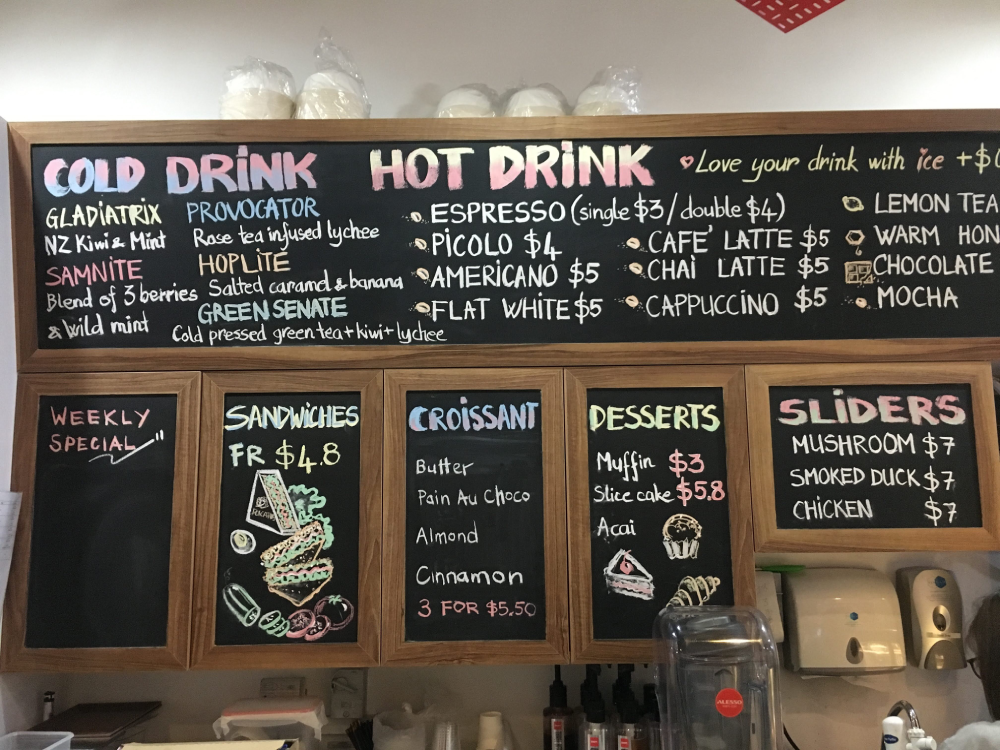 COLD DRINK
GLADIATRIX
NZ Kiwi & Mint
SAMNITE
Blend of 3 berries
& wild mint
PROVOCATOR
Rose tea infused lychee
HOPLITE
Salted caramel & banana
GREEN SENATE
Cold pressed green tea + kiwi + lychee
HOT DRINK
Love your drink with ice +$
ESPRESSO (single $3 / double $4)
PICOLO $4
AMERICANO $5
FLAT WHITE $5
CAFE' LATTE $5
CHAI LATTE $5
CAPPUCCINO $5
LEMON TEA
WARM HON
CHOCOLATE
MOCHA
WEEKLY
SPECIAL
SANDWICHES
FR $4.8
CROISSANT
Butter
Pain Au Choco
Almond
Cinnamon
3 FOR $5.50
DESSERTS
Muffin $3
Slice cake $5.8
Acai
SLIDERS
MUSHROOM $7
SMOKED DUCK $7
CHICKEN $7